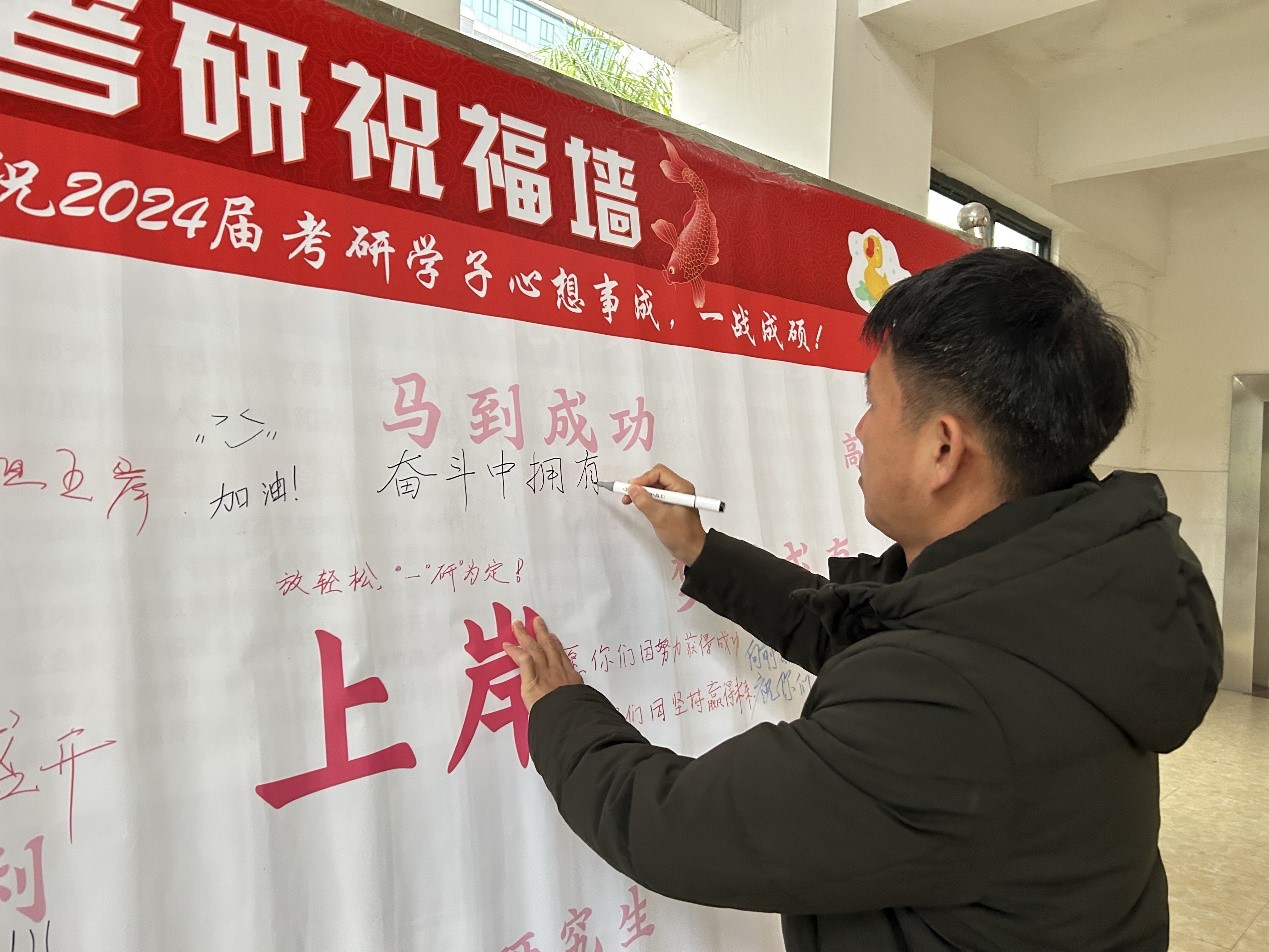 考研祝福墙
祝2024届考研学子心想事成，一战成硕！
马到成功
高
奋斗中拥有
加油！
放轻松，“一”研”为定！
上岸
愿你们因努力获得成功
们因坚持赢得未来
祝你们
开
利
研究生